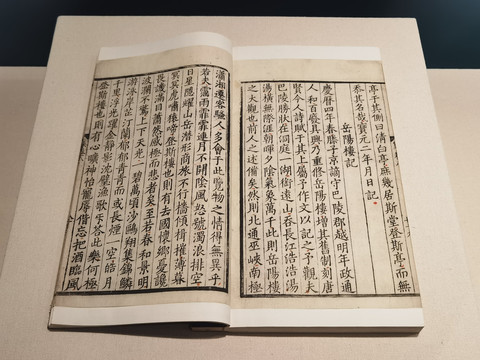 亭于其側曰清白亭庶幾居斯堂登斯亭而無
忝其名哉寶元二年月日記
岳陽樓記
慶曆四年春滕子京謫守巴陵郡越明年政通
人和百癈具興乃重脩岳陽樓增其舊制刻唐
賢今人詩賦于其上屬予作文以記之予觀夫
巴陵勝狀在洞庭一湖銜遠山吞長江浩浩湯
湯橫無際涯朝暉夕陰氣象萬千此則岳陽樓
之大觀也前人之述備矣然則北通巫峽南極
瀟湘遷客騷人多會于此覽物之情得無異乎
若夫霪雨霏霏連月不開陰風怒號濁浪排空
日星隱耀山岳潛形商旅不行檣傾楫摧薄暮
冥冥虎嘯猿啼登斯樓也則有去國懷鄉憂讒
畏譏滿目蕭然感極而悲者矣至若春和景明
波瀾不驚上下天光一碧萬頃沙鷗翔集錦鱗
游泳岸芷汀蘭郁郁青青而或長煙一空皓月
千里浮光躍金靜影沈璧漁歌互答此樂何極
登斯樓也則有心曠神怡寵辱偕忘把酒臨風